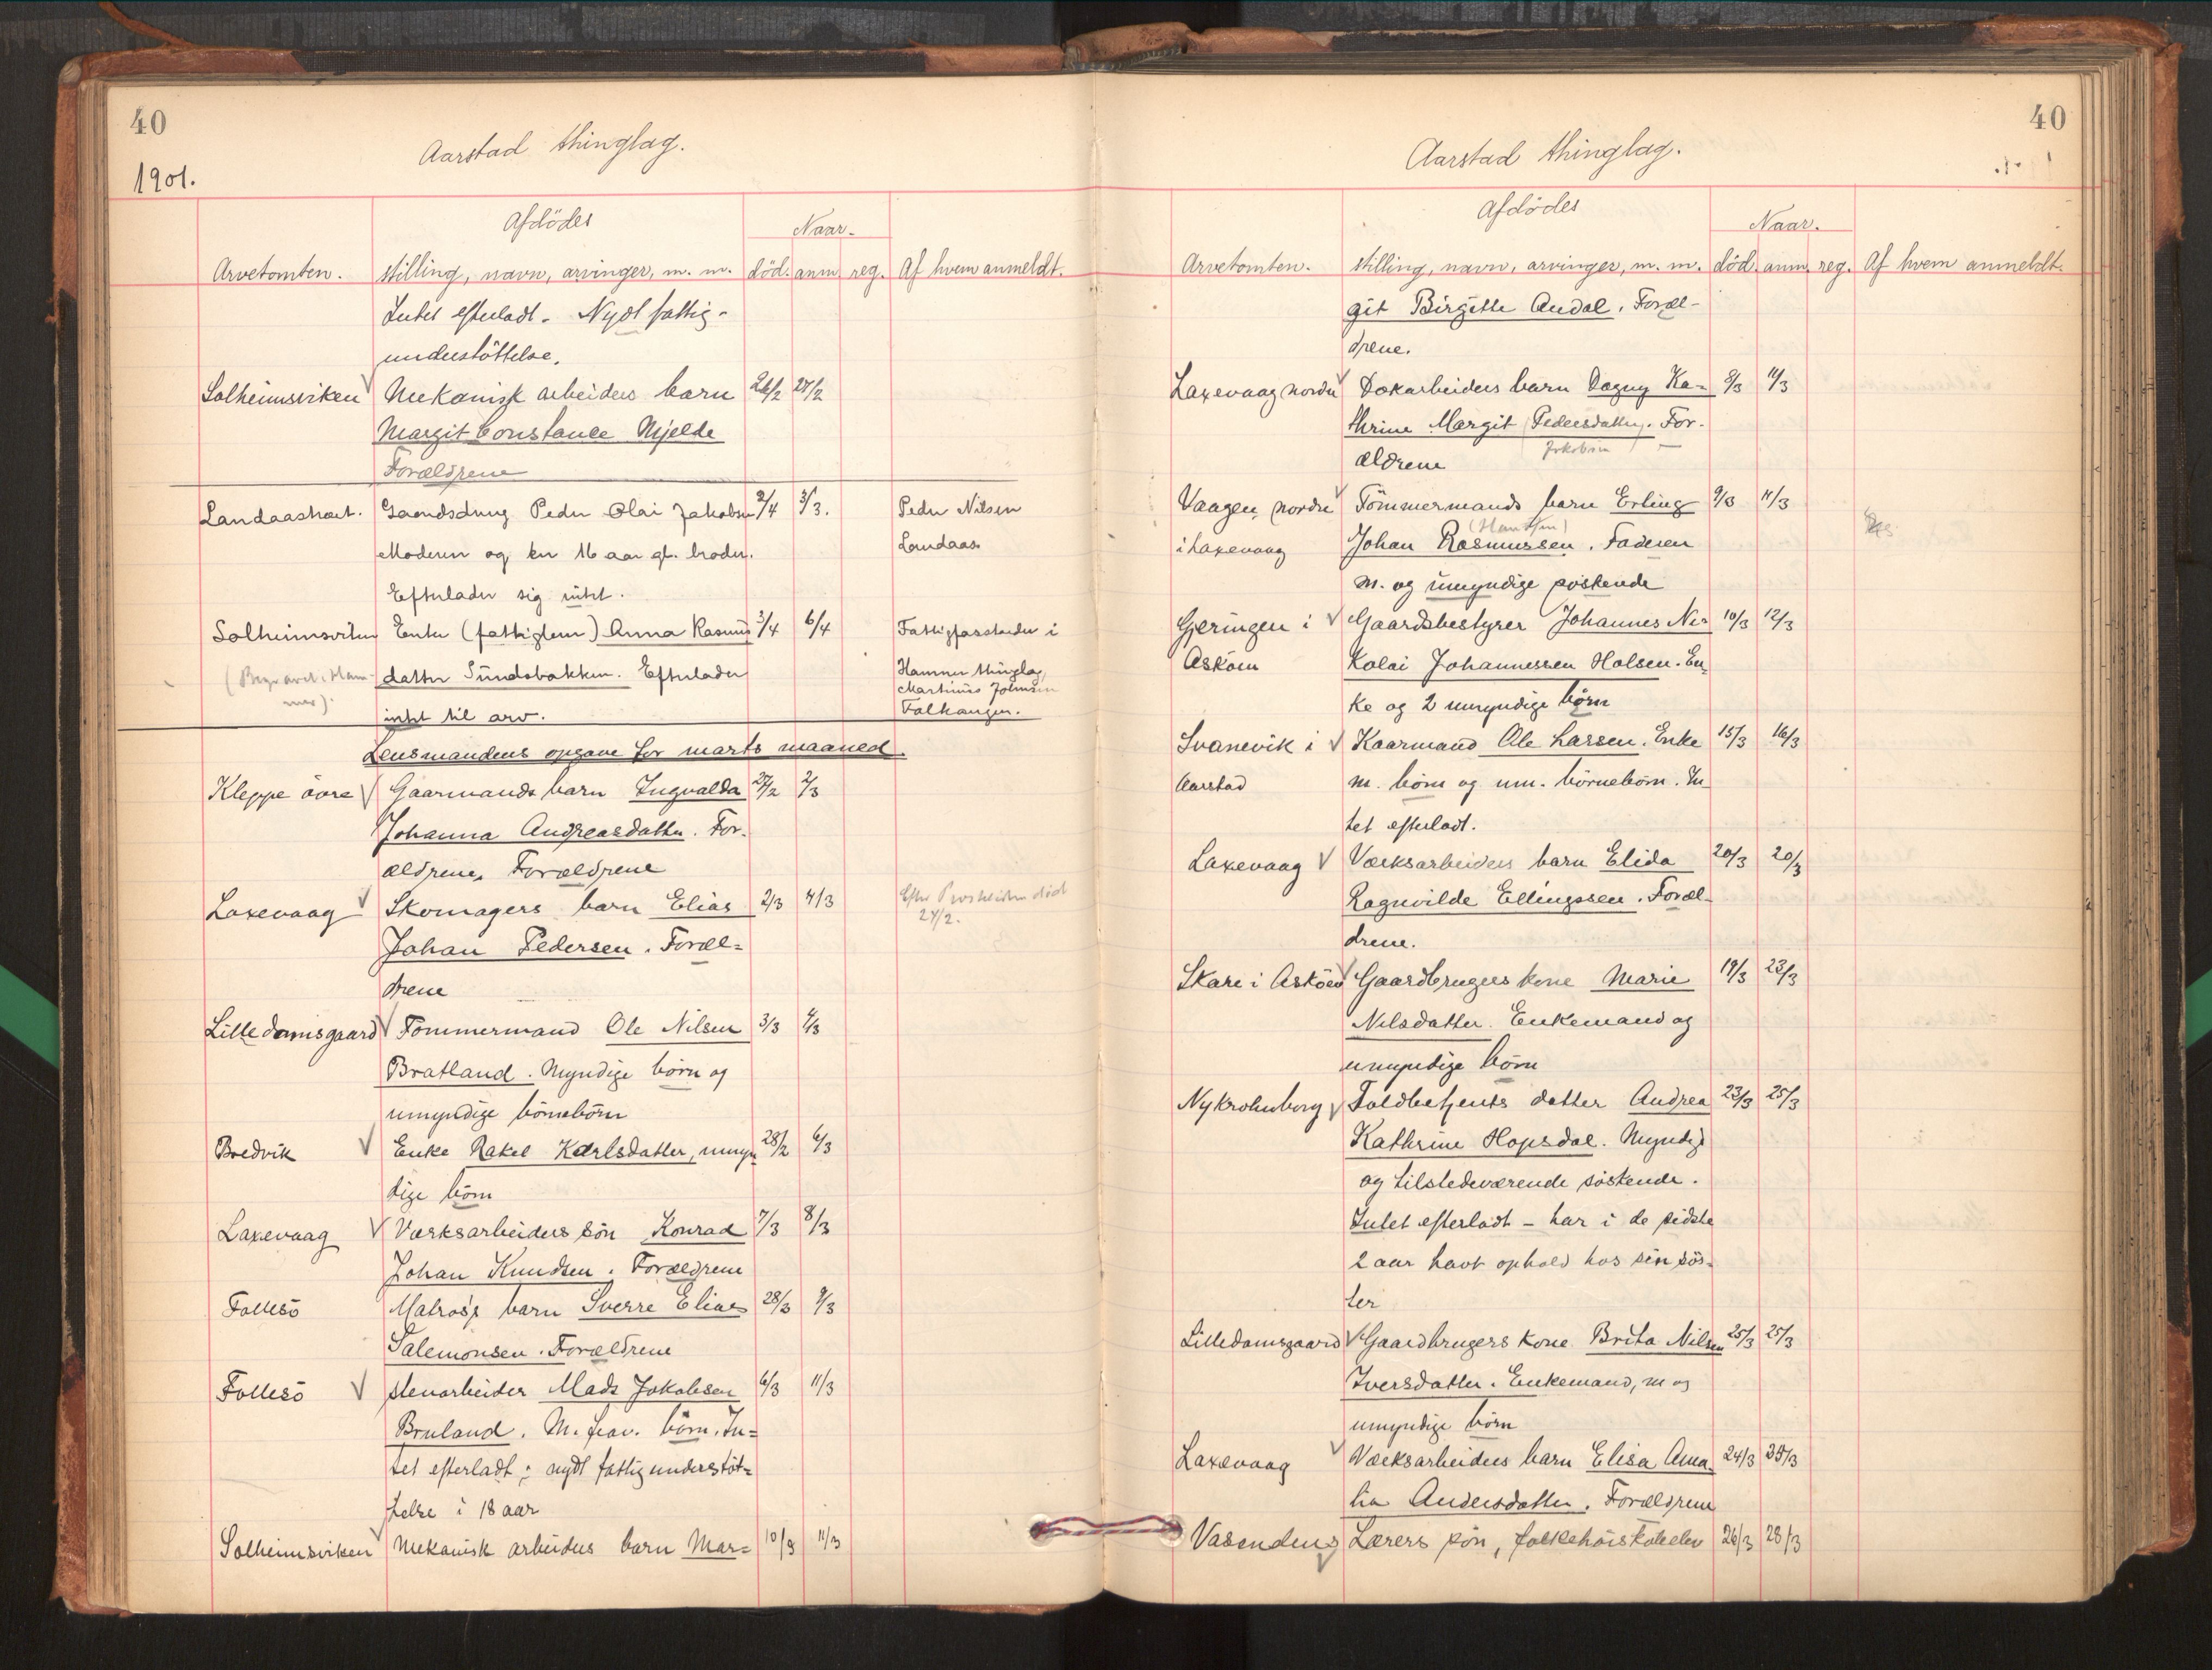 40
Aarstad thinglag.
1901.
Afdödes
Naar.
Arvetomten. stilling, navn, arvinger, m. m. död. anm. reg. Af hvem anmeldt.
Intet efterladt. Nydt fattig-
understöttelse.
Solheimsviken Mekanisk arbeiders barn 26/2 27/2
Margit Constance Mjelde
Forældrene
Landaas Gaardsdreng Peder Olai Jakobsen 2/4 3/3. Peder Nilsen
Moderen og en 16 aar gl. broder. Landaas
Efterlader sig intet.
Solheimsviken Enke (fattiglem) Anna Rasmus 3/4 6/4 Fattigforstander i
(Begravet i Ham- datter Sundsbakken. Efterlader Hammer thinglag,
mer). Martinus Johnsen
intet til arv. Falkanger.
Lensmandens opgave for marts maaned.
Kleppe övre Gaarmands barn Ingvalda 27/2 2/3
Johanna Andreasdatter. For-
ældrene, Forældrene
Laxevaag Skomagers barn Elias 2/3 4/3 Efter død
Johan Pedersen. Foræl- 24/2.
drene
Lille damsgaard Tömmermand Ole Nilsen 3/3 4/3
Bratland. Myndige börn og
umyndige börnebörn
Bredvik Enke Rakel Karlsdatter, umyn 28/2 6/3
dige börn
Laxevaag Værksarbeiders sön Konrad 7/3 8/3
Johan Knudsen. Forældrene
Follesö Matros's barn Sverre Elias 28/3 9/3
Salemonsen. Forældrene
Follesö stenarbeider Mads Jakobsen 6/3 11/3
Bruland. M. frav. börn. In-
tet efterladt; nydt fattigunderstöt-
telse i 18 aar
Solheimsviken Mekanisk arbeiders barn Mar- 10/3 11/3
40
Aarstad thinglag.
Afdödes
Naar.
Arvetomten. stilling, navn, arvinger, m. m. död. anm. reg. Af hvem anmeldt.
git Birgitte Andal. Foræl-
drene.
Laxevaag nordre Dokarbeiders barn Dagny Ka- 8/3 11/3
thrine Margit Pedersdatter. For-
Jakobsen
ældrene
Vaagen, nordre Tömmermands barn Erling 9/3 11/3
(Hansen)
i Laxevaag Johan Rasmussen. Faderen
m. og umyndige söskende
Gjeringen i Gaardsbestyrer Johannes Ni- 10/3 12/3
Asköen kolai Johannessen Holsen. En-
ke og 2 umyndige börn
Svanevik i Kaarmand Ole Larsen. Enke 15/3 16/3
Aarstad m. börn og um. börnebörn. In-
tet efterladt.
Laxevaag Værksarbeiders barn Elida 20/3 20/3
Ragnvilde Ellingssen. Foræl-
drene.
Skare i Asköen Gaardbrugers kone Marie 19/3 23/3
Nilsdatter. Enkemand og
umyndige börn
Nykrohnborg Toldbetjents datter Andrea 23/3 25/3
Kathrine Hopsdal. Myndige
og tilstedeværende söskende.
Intet efterladt - har i de sidste
2 aar havt ophold hos sin sös-
ter
Lilledamsgaard Gaardbrugers kone Brita Nilsen 25/3 25/3
Iversdatter. Enkemand, m og
umyndige börn
Laxevaag Værksarbeiders barn Elisa Ama- 24/3 25/3
lia Andersdatter. Forældrene
Vasenden Lærers sön, folkehöiskoleelev 26/3 28/3